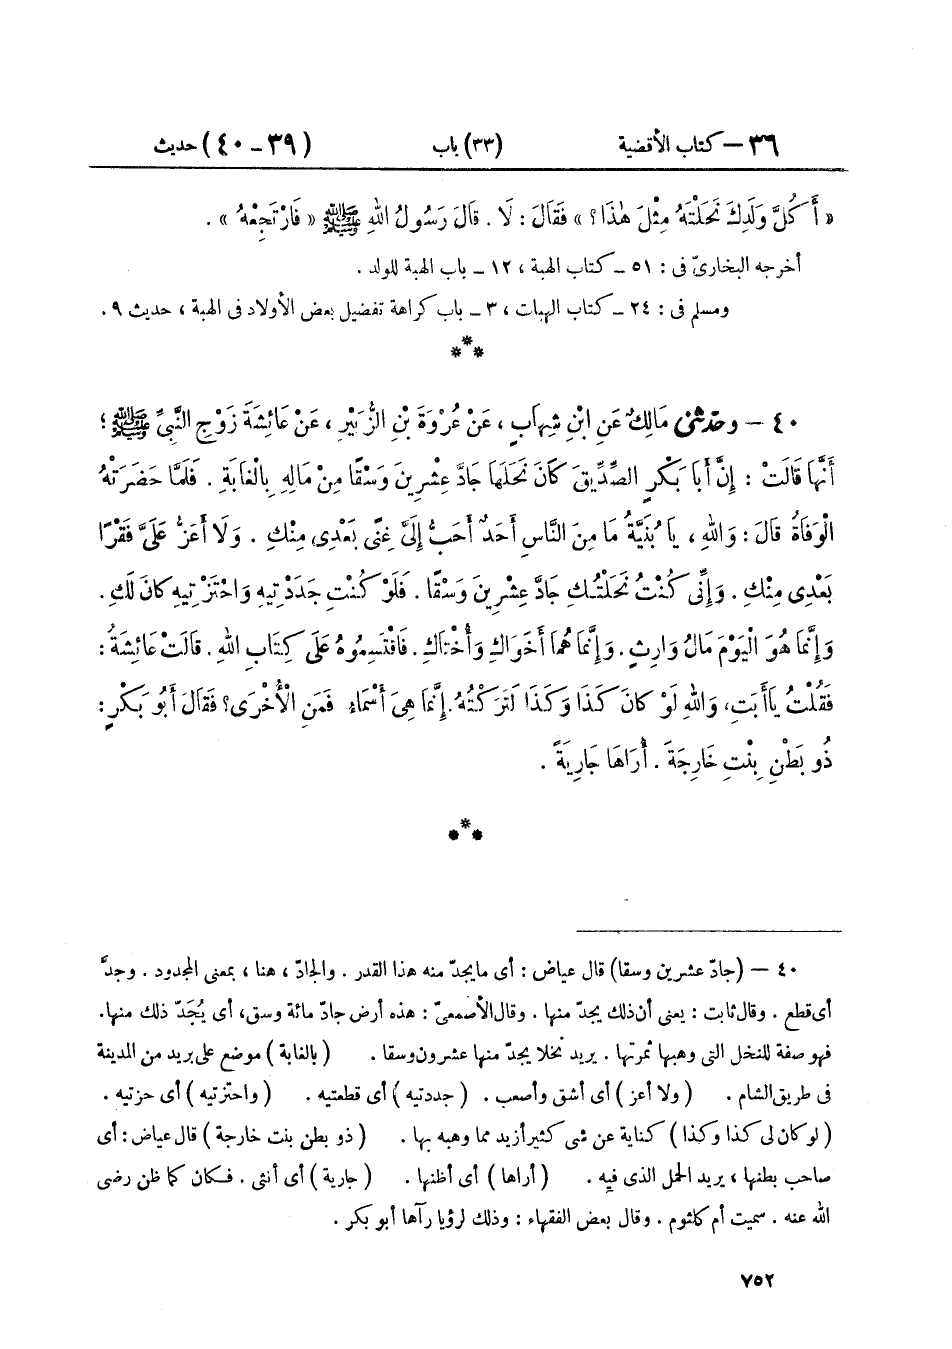 ٣٦ – كتاب الأقضية (٣٣) باب (٣٩ – ٤٠) حديث
« أَكُلَّ وَلَدِكَ نَحَلْتَهُ مِثْلَ هٰذَا ؟ » فَقَالَ : لَا . قَالَ رَسُولُ اللهِ ﷺ « فَارْتَجِعْهُ » .
أخرجه البخارىّ فى : ٥١ – كتاب الهبة ، ١٢ – باب الهبة للولد .
ومسلم فى : ٢٤ – كتاب الهبات ، ٣ – باب كراهة تفضيل بعض الأولاد فى الهبة ، حديث ٩ .
***
٤٠ – وحدثنى مَالِكٌ عَنِ ابْنِ شِهَابٍ ، عَنْ عُرْوَةَ بْنِ الزُّبَيْرِ ، عَنْ عَائِشَةَ زَوْجِ النَّبِىِّ ﷺ ؛
أَنَّهَا قَالَتْ : إِنَّ أَبَا بَكْرٍ الصِّدِّيقَ كَانَ نَحَلَهَا جَادَّ عِشْرِينَ وَسْقًا مِنْ مَالِهِ بِالْغَابَةِ . فَلَمَّا حَضَرَتْهُ
الْوَفَاةُ قَالَ : وَاللهِ ، يَا بُنَيَّةُ مَا مِنَ النَّاسِ أَحَدٌ أَحَبُّ إِلَىَّ غِنًى بَعْدِى مِنْكِ . وَلَا أَعَزُّ عَلَىَّ فَقْرًا
بَعْدِى مِنْكِ . وَإِنِّى كُنْتُ نَحَلْتُكِ جَادَّ عِشْرِينَ وَسْقًا . فَلَوْ كُنْتِ جَدَدْتِيهِ وَاحْتَزْتِيهِ كَانَ لَكِ .
وَإِنَّمَا هُوَ الْيَوْمَ مَالُ وَارِثٍ . وَإِنَّمَا هُمَا أَخَوَاكِ وَأُخْتَاكِ . فَاقْتَسِمُوهُ عَلَى كِتَابِ اللهِ . قَالَتْ عَائِشَةُ :
فَقُلْتُ يَاأَبَتِ ، وَاللهِ لَوْ كَانَ كَذَا وَكَذَا لَتَرَكْتُهُ . إِنَّمَا هِىَ أَسْمَاءُ فَمَنِ الْأُخْرَى ؟ فَقَالَ أَبُو بَكْرٍ :
ذُو بَطْنِ بِنْتِ خَارِجَةَ . أُرَاهَا جَارِيَةً .
***
٤٠ – (جادّ عشرين وسقا) قال عياض : أى مايجدّ منه هذا القدر . والجادّ ، هنا ، بمعنى المجدود . وجدَّ
أى قطع . وقال ثابت : يعنى أن ذلك يجدّ منها . وقال الأصمعىّ : هذه أرض جادّ مائة وسق ، أى يُجَدّ ذلك منها .
فهو صفة للنخل التى وهبها ثمرتها . يريد نخلا يجدّ منها عشرون وسقا . ( بالغابة ) موضع على بريد من المدينة
فى طريق الشام . ( ولا أعز ) أى أشق وأصعب . ( جددتيه ) أى قطعتيه . ( واحتزتيه ) أى حزتيه .
( لو كان لى كذا وكذا ) كناية عن شى كثير أزيد مما وهبه بها . ( ذو بطن بنت خارجة ) قال عياض : أى
صاحب بطنها ، يريد الحمل الذى فيه . ( أراها ) أى أظنها . ( جارية ) أى أنثى . فكان كما ظن رضى
الله عنه . سميت أم كلثوم . وقال بعض الفقهاء : وذلك لرؤيا رآها أبو بكر .
٧٥٢